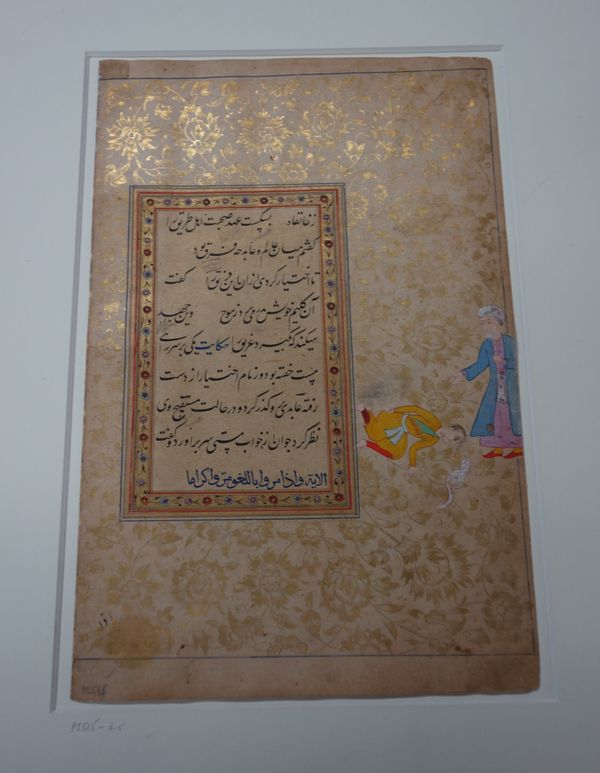 زخانقاه بشکست عهد صحبت اهل طریق را
گفتم میان عالم و عابد چه فرق بود
تا اختیار کردی ازان این فریق را گفت
آن کلیم خویش می برد ز موج وین جهد
میکند که بگیرد غریق را حکایت یکی بر سر راهی
مست خفته بود و زمام اختیار از دست
رفته عابدی برو گذر کرد و در حالت مستقبح وی
نظر کرد جوان زخواب مستی سر براورد و گفت
الایة واذا مروا باللغو مروا کراما